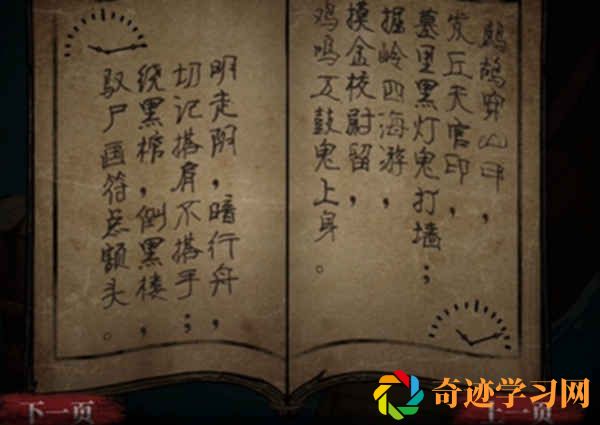 鹧鸪穿山甲，
发丘天官印，
墓里黑灯鬼打墙；
掘岭四海游，
摸金校尉留，
鸡鸣五鼓鬼上身。
明走阴，暗行舟，
切记搭肩不搭手；
绕黑棺，倒黑楼，
驭尸画符点额头。
下一页
上一页
奇迹学习网